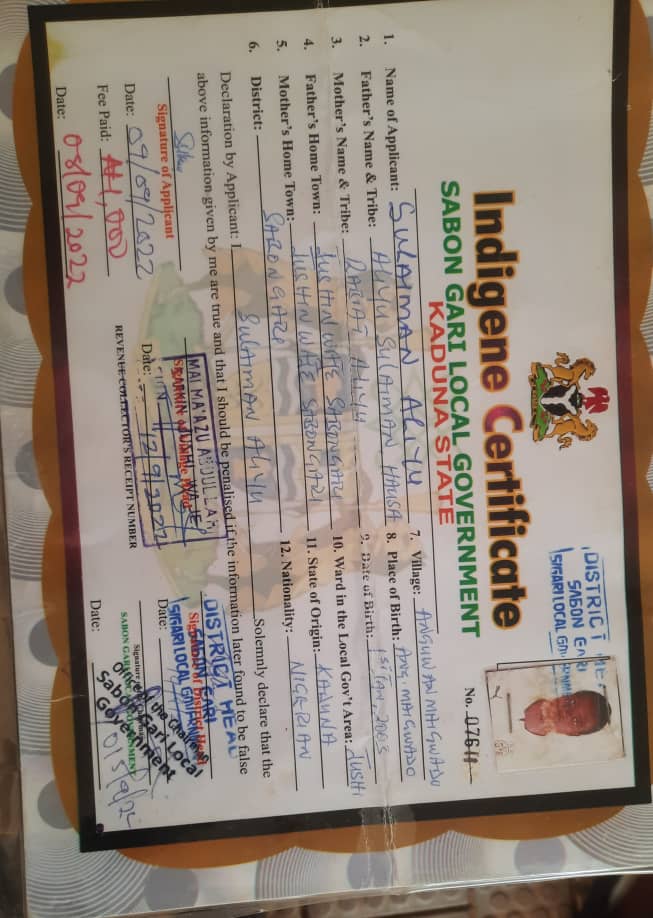 Indigene Certificate
SABON GARI LOCAL GOVERNMENT
KADUNA STATE
DISTRICT HE
SABON GARI
No. 0761
1. Name of Applicant: SULAIMAN ALIYU
2. Father's Name & Tribe: ALIYU SULAIMAN HAUSA
3. Mother's Name & Tribe: ALIYU
4. Father's Home Town: JUSHIN WAJE SABONGARI
5. Mother's Home Town: JUSHIN WAJE SABONGARI
6. District: SABONGARI
7. Village: ANGUWAN MAIGWADO
8. Place of Birth: ANG. MAIGWADO
9. Date of Birth: 1st JAN, 2003
10. Ward in the Local Gov't Area: JUSHI
11. State of Origin: KADUNA
12. Nationality: NIGERIAN
Declaration by Applicant: I SULAIMAN ALIYU Solemnly declare that the
above information given by me are true and that I should be penalised if the information later found to be false
Signature of Applicant
Date: 09/09/2022
Fee Paid: ₦1,000
Date: 08/09/2022
MAL MA'AZU ABDULLAHI
Date: 12/9/2022
REVENUE COLLECTOR'S RECEIPT NUMBER
DISTRICT HEAD
Signature of District Head
Date:
Office of the Chairman
Sabon Gari Local
Government
Date: